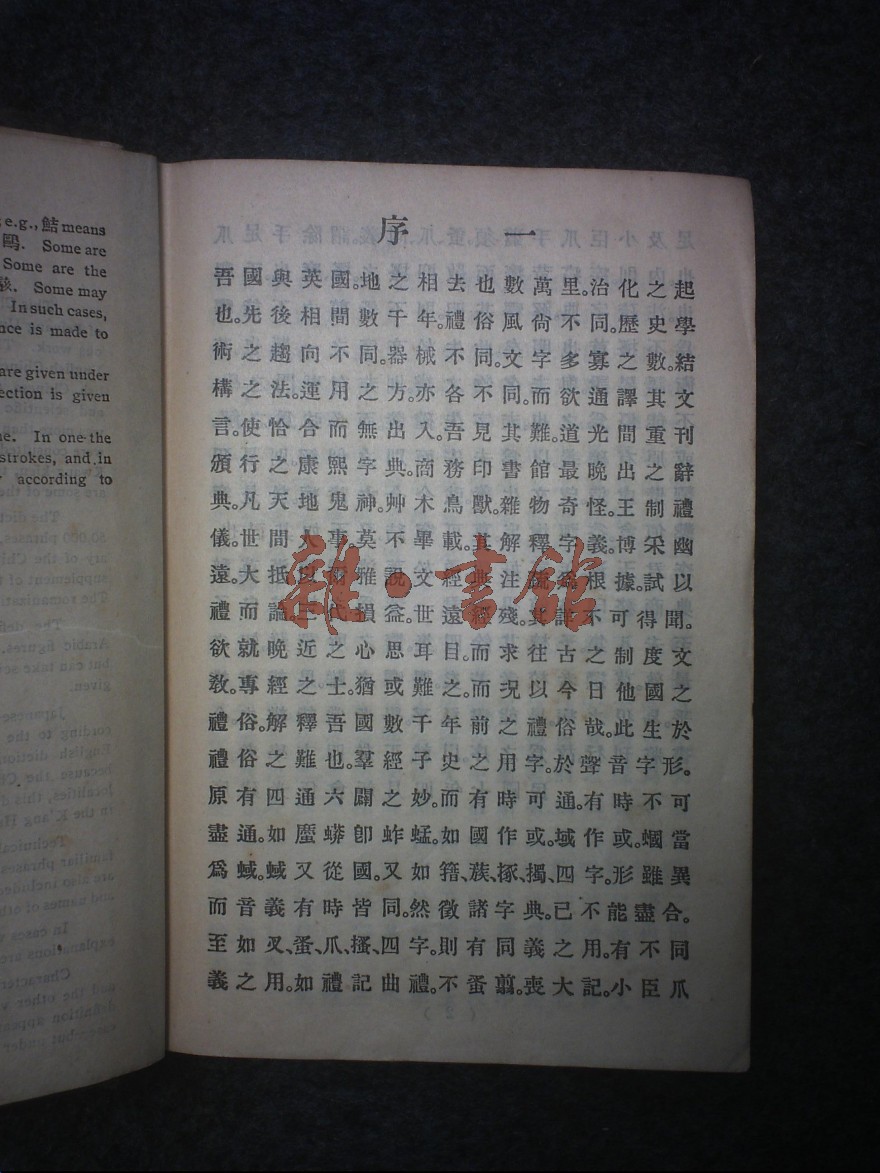 e.g., 鮚 means
鷗. Some are
Some are the
Some may
In such cases,
nce is made to
are given under
ection is given
ne. In one the
strokes, and in
according to
序一
吾國與英國。地之相去也數萬里。治化之起
也。先後相間數千年。禮俗風尙不同。歷史學
術之趨向不同。器械不同。文字多寡之數。結
構之法。運用之方。亦各不同。而欲通譯其文
言。使恰合而無出入。吾見其難。道光間重刊
頒行之康熙字典。商務印書館最晚出之辭
典。凡天地鬼神。艸木鳥獸。雜物奇怪。王制禮
儀。世間人事。莫不畢載。其解釋字義。博采幽
遠。大抵以爾雅說文經典注疏爲根據。試以
禮而論。三代損益。世遠經殘。其詳不可得聞。
欲就晚近之心思耳目。而求往古之制度文
敎。專經之士。猶或難之。而況以今日他國之
禮俗。解釋吾國數千年前之禮俗哉。此生於
禮俗之難也。羣經子史之用字。於聲音字形。
原有四通六闢之妙。而有時可通。有時不可
盡通。如蟒卽蚱蜢。如國作或。域作或。蟈當
爲蜮。蜮又從國。又如籍、簇、㧻、擉、四字。形雖異
而音義有時皆同。然徵諸字典。已不能盡合。
至如叉、蚤、爪、搔、四字。則有同義之用。有不同
義之用。如禮記曲禮。不蚤翦。喪大記。小臣爪
雜·書館